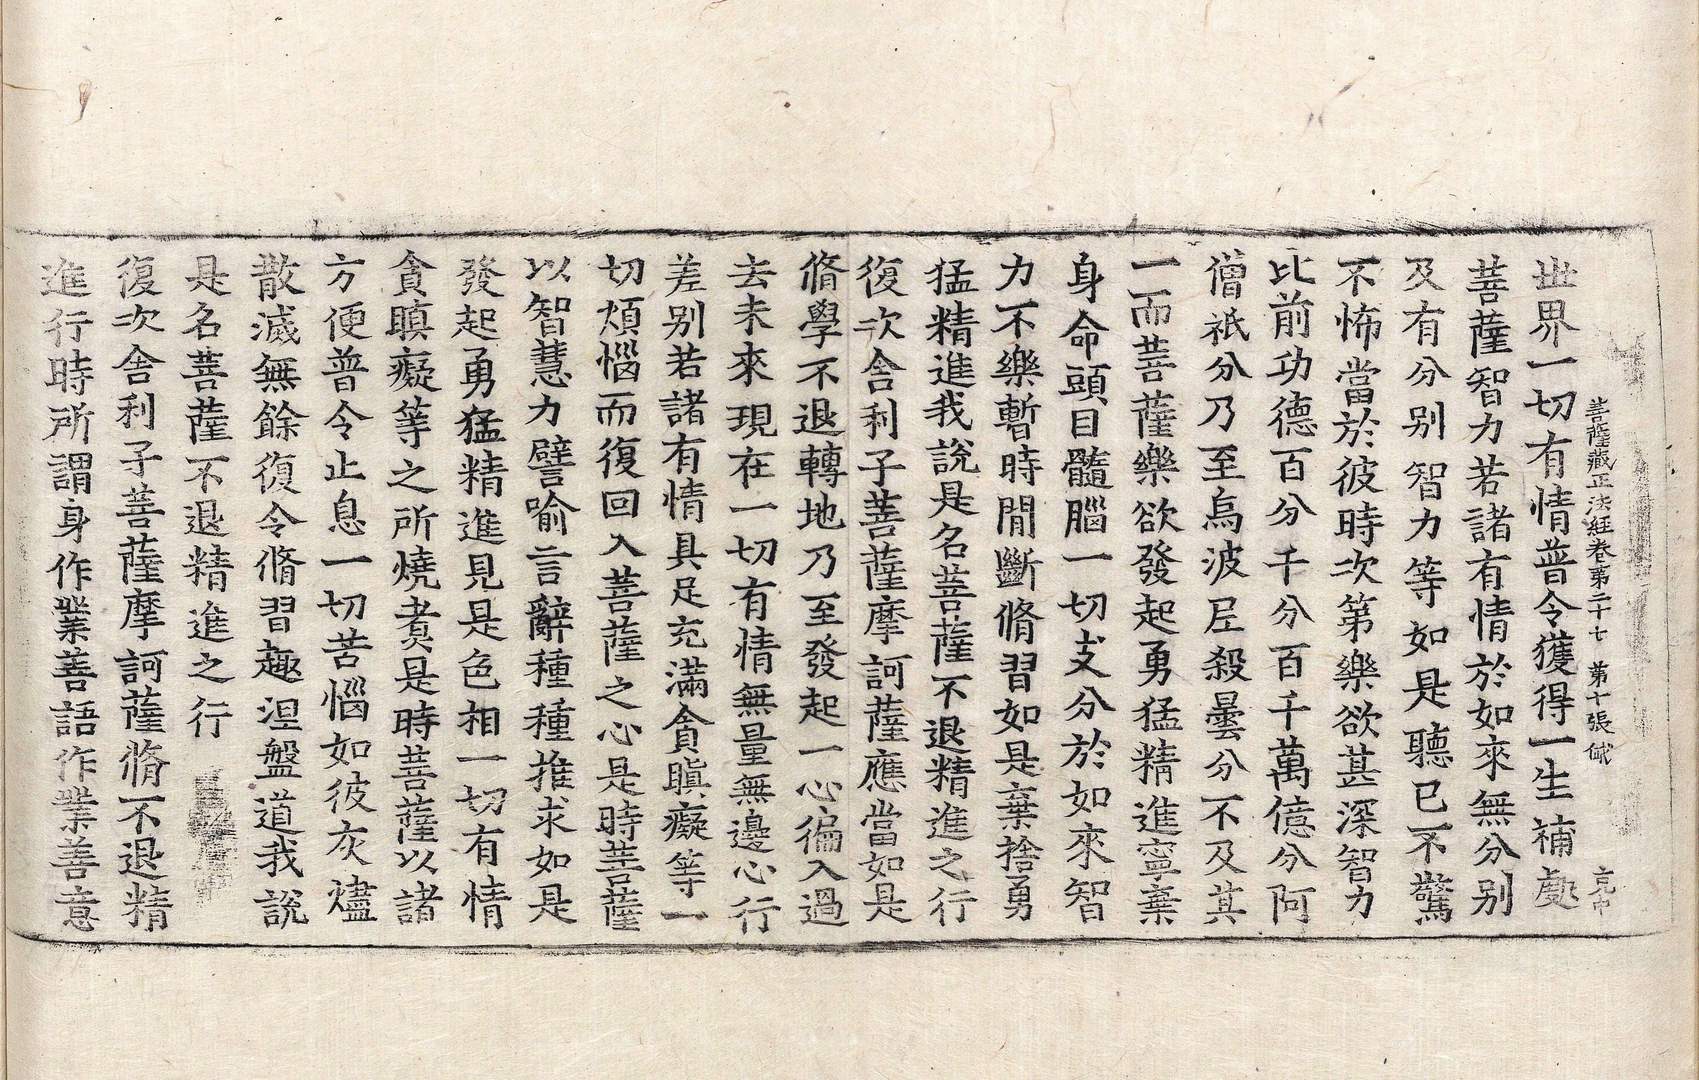 菩薩藏正法經卷第二十七 第十張
世界一切有情普令獲得一生補處
菩薩智力若諸有情於如來無分别
及有分别智力等如是聽已不驚
不怖當於彼時次第樂欲甚深智力
比前功德百分千分百千萬億分阿
僧祇分乃至烏波尼殺曇分不及其
一而菩薩樂欲發起勇猛精進寧棄
身命頭目髓腦一切支分於如來智
力不樂暫時閒斷脩習如是棄捨勇
猛精進我說是名菩薩不退精進之行
復次舍利子菩薩摩訶薩應當如是
脩學不退轉地乃至發起一心徧入過
去未來現在一切有情無量無邊心行
差别若諸有情具足充滿貪瞋癡等一
切煩惱而復回入菩薩之心是時菩薩
以智慧力譬喻言辭種種推求如是
發起勇猛精進見是色相一切有情
貪瞋癡等之所燒煑是時菩薩以諸
方便普令止息一切苦惱如彼灰燼
散滅無餘復令脩習趣涅盤道我說
是名菩薩不退精進之行
復次舍利子菩薩摩訶薩脩不退精
進行時所謂身作業善語作業善意